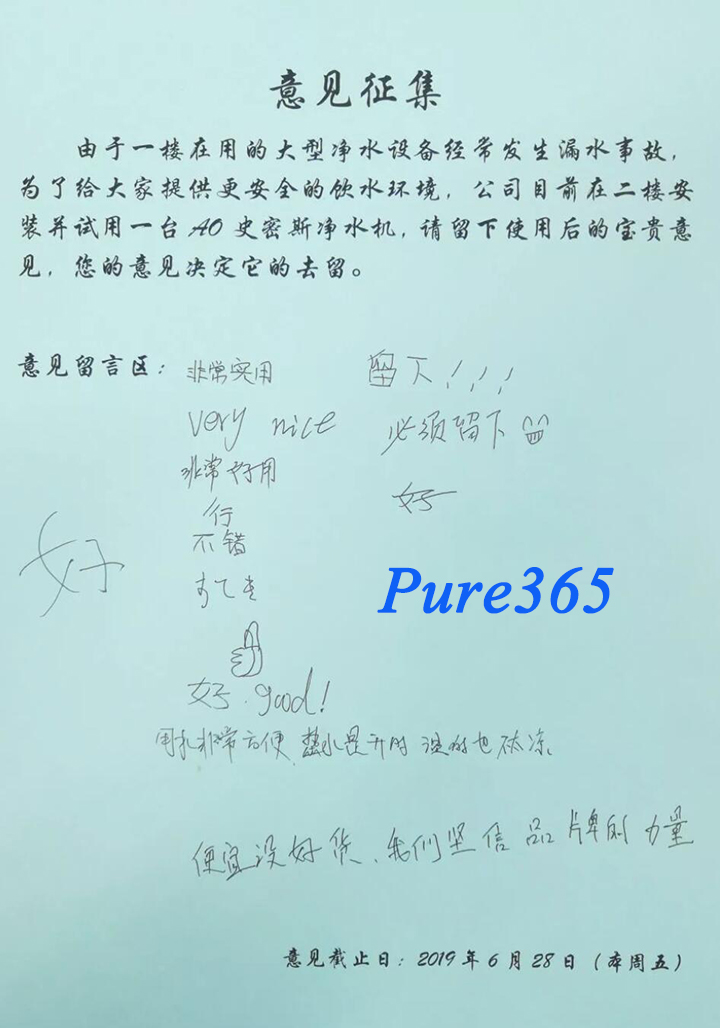 意见征集
由于一楼在用的大型净水设备经常发生漏水事故，
为了给大家提供更安全的饮水环境，公司目前在二楼安
装并试用一台AO史密斯净水机，请留下使用后的宝贵意
见，您的意见决定它的去留。
意见留言区：
非常实用
very nice
非常好用
行
不错
好
好.good!
用扎非常方便 整水是开的 没的也
留下!!!
必须留下
好
Pure365
便宜没好货、我们坚信品牌的力量
意见截止日：2019年6月28日（本周五）